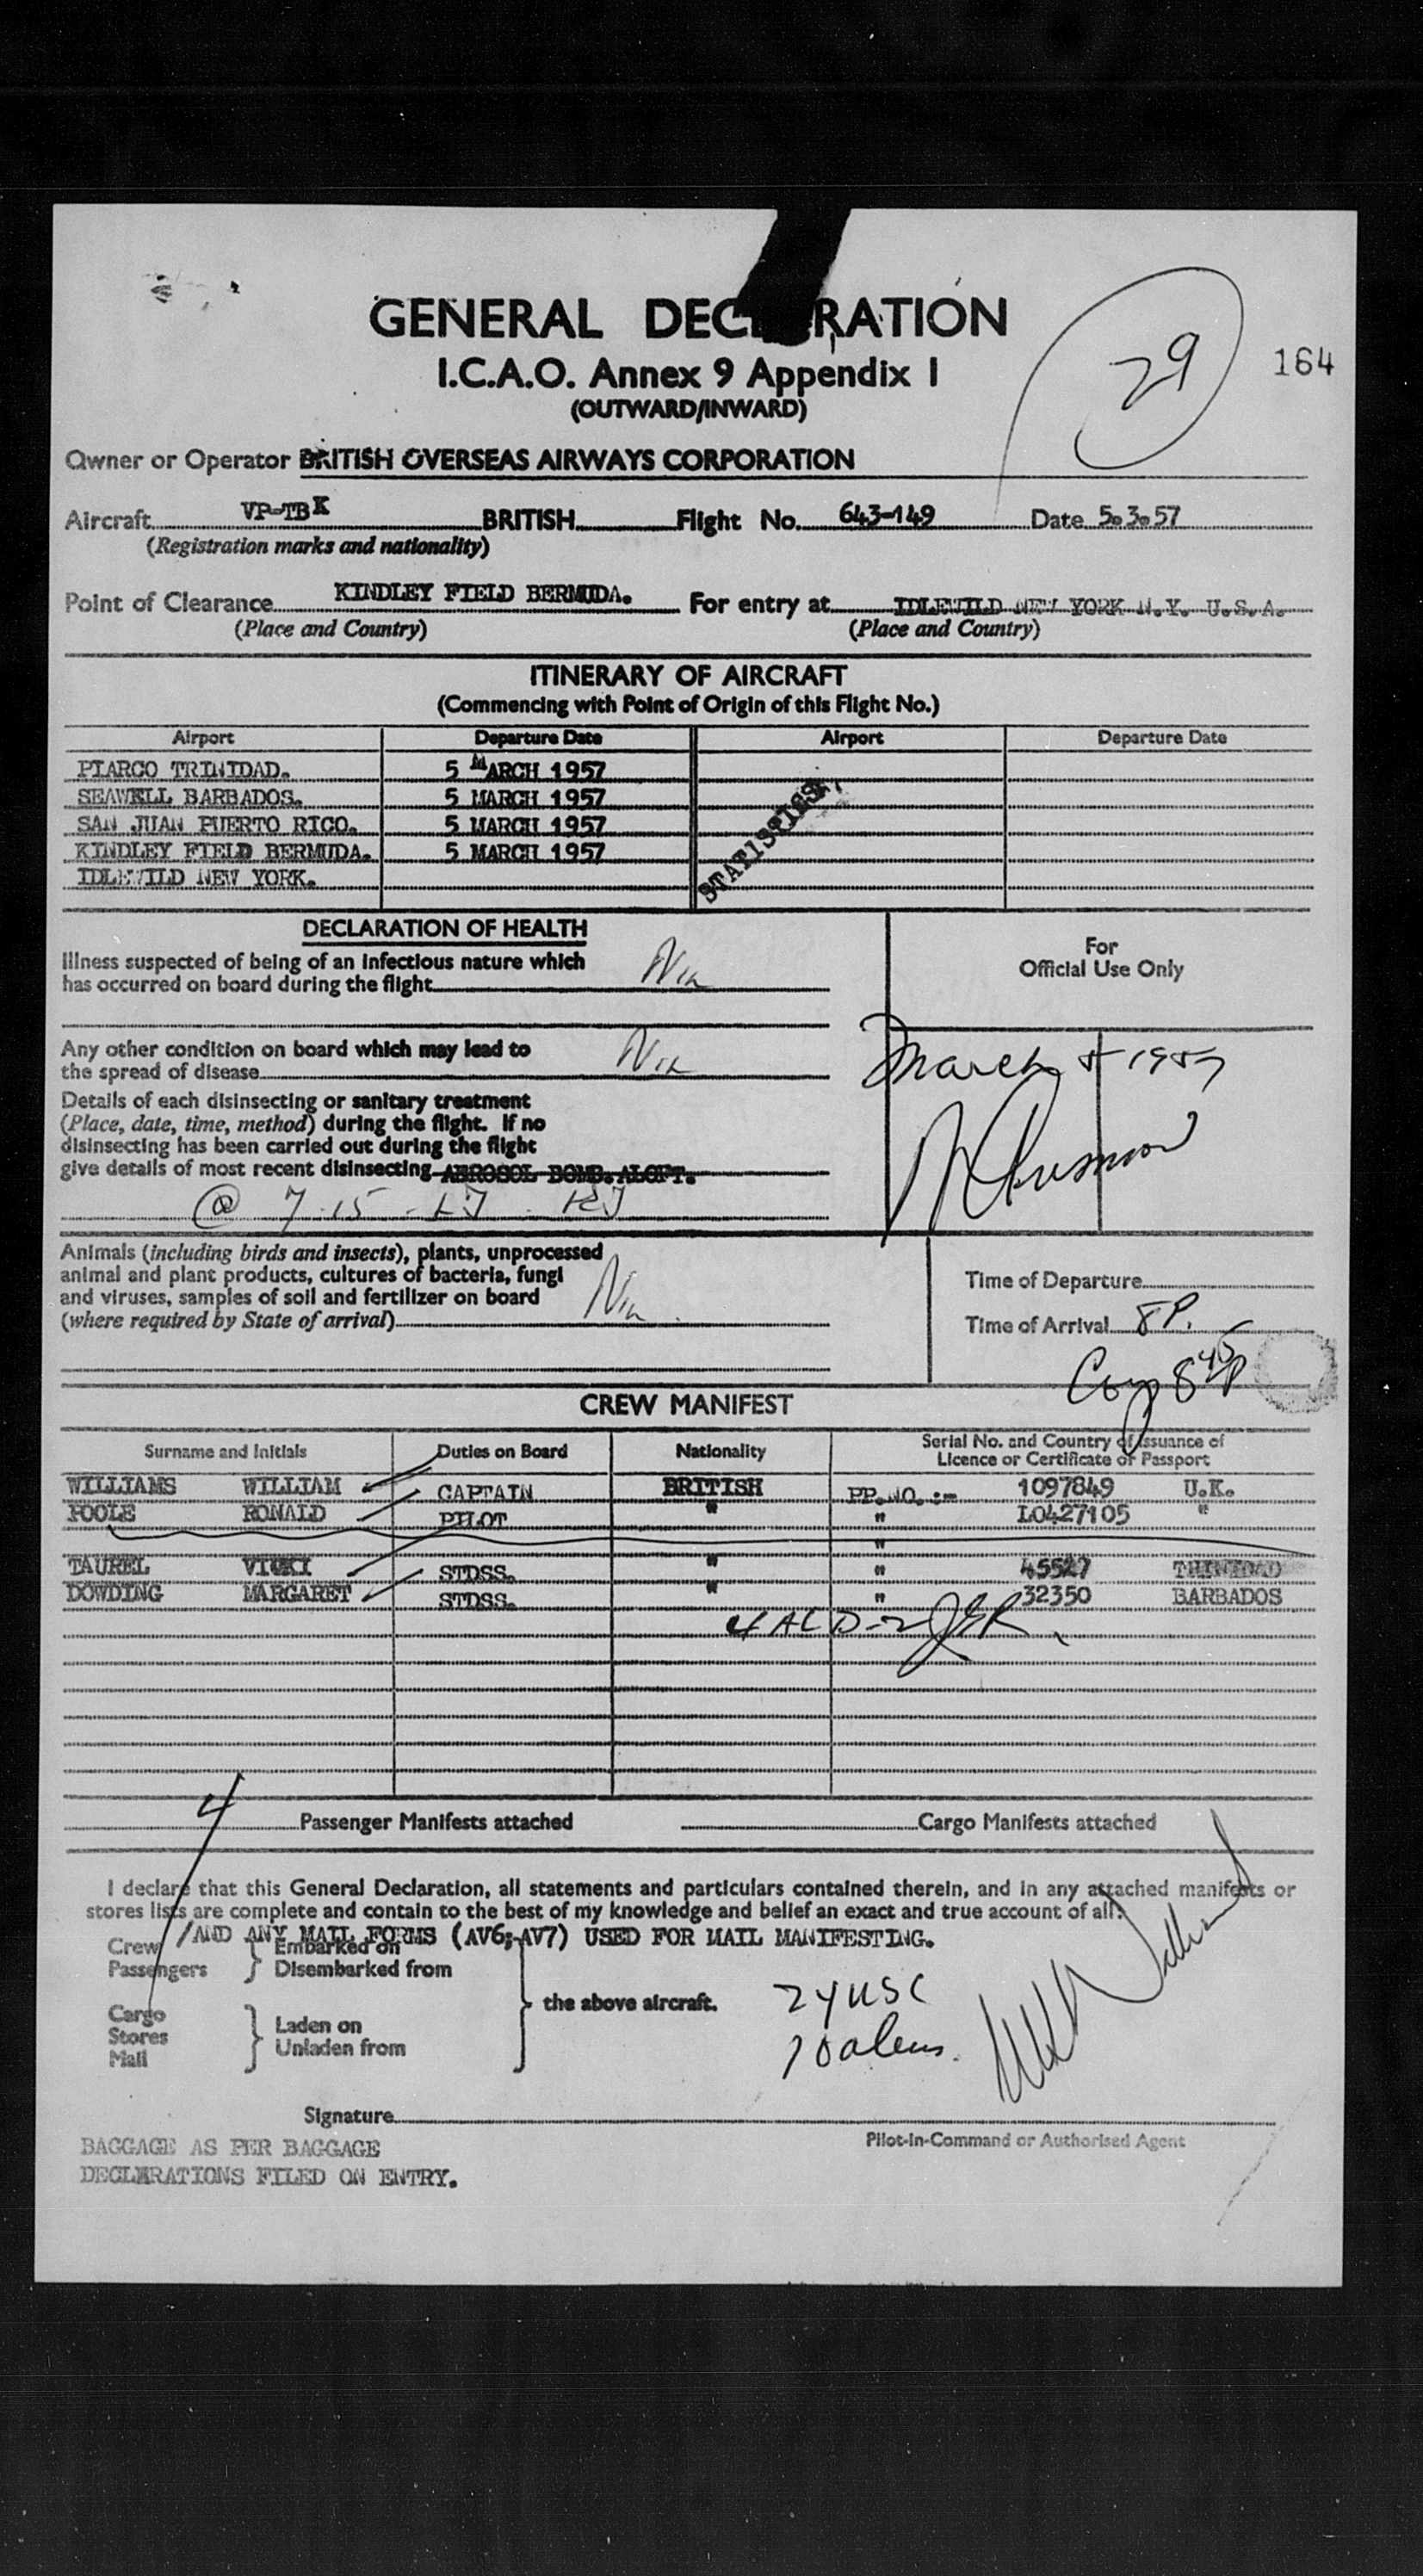 GENERAL DEC RATION
I.C.A.O. Annex 9 Appendix 1
(OUTWARD/INWARD)
29
164
Owner or Operator BRITISH OVERSEAS AIRWAYS CORPORATION
Aircraft VP-TBK BRITISH Flight No. 643-149 Date 5.3.57
(Registration marks and nationality)
Point of Clearance KINDLEY FIELD BERMUDA. For entry at IDLEWILD NEW YORK N.Y. U.S.A.
(Place and Country) (Place and Country)
ITINERARY OF AIRCRAFT
(Commencing with Point of Origin of this Flight No.)
Airport Departure Date Airport Departure Date
PIARCO TRINIDAD. 5 MARCH 1957
SEAWELL BARBADOS. 5 MARCH 1957
SAN JUAN PUERTO RICO. 5 MARCH 1957
KINDLEY FIELD BERMUDA. 5 MARCH 1957
IDLEWILD NEW YORK.
STATISTICS
DECLARATION OF HEALTH
Illness suspected of being of an infectious nature which
has occurred on board during the flight Nil
For
Official Use Only
Any other condition on board which may lead to
the spread of disease Nil
March 5 1957
Details of each disinsecting or sanitary treatment
(Place, date, time, method) during the flight. If no
disinsecting has been carried out during the flight
give details of most recent disinsecting AEROSOL BOMB. ALOFT.
@ 7.15
Animals (including birds and insects), plants, unprocessed
animal and plant products, cultures of bacteria, fungi
and viruses, samples of soil and fertilizer on board
(where required by State of arrival) Nil
Time of Departure
Time of Arrival 8P.
8 45 P
CREW MANIFEST
Surname and Initials Duties on Board Nationality Serial No. and Country of Issuance of
Licence or Certificate or Passport
WILLIAMS WILLIAM CAPTAIN BRITISH PP.NO.:- 1097849 U.K.
POOLE RONALD PILOT " " L0427105 "
"
TAUREL VICKI STDSS. " " 45527 TRINIDAD
DOWDING MARGARET STDSS. " " 32350 BARBADOS
4
Passenger Manifests attached Cargo Manifests attached
I declare that this General Declaration, all statements and particulars contained therein, and in any attached manifests or
stores lists are complete and contain to the best of my knowledge and belief an exact and true account of all:
/AND ANY MAIL FORMS (AV6;-AV7) USED FOR MAIL MANIFESTING.
Crew Embarked on
Passengers Disembarked from
the above aircraft.
Cargo Laden on
Stores Unladen from
Mail
24 USC
10 aliens.
Signature
Pilot-in-Command or Authorised Agent
BAGGAGE AS PER BAGGAGE
DECLARATIONS FILED ON ENTRY.